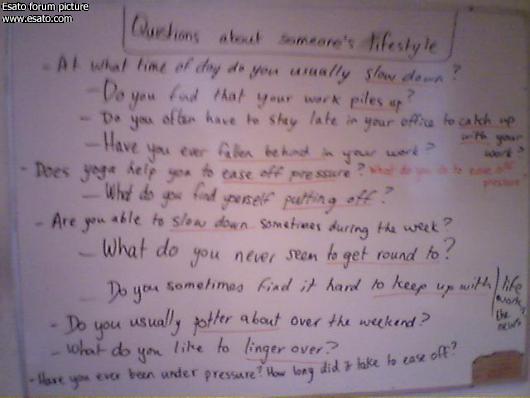 Esato forum picture
www.esato.com
Questions about someone's lifestyle
- At what time of day do you usually slow down?
- Do you find that your work piles up?
- Do you often have to stay late in your office to catch up
with your
work?
- Have you ever fallen behind in your work?
- Does yoga help you to ease off pressure? What do you do to ease off
pressure?
- What do you find yourself putting off?
- Are you able to slow down sometimes during the week?
- What do you never seem to get round to?
- Do you sometimes find it hard to keep up with / life
work,
the news
- Do you usually potter about over the weekend?
- What do you like to linger over?
- Have you ever been under pressure? How long did it take to ease off?